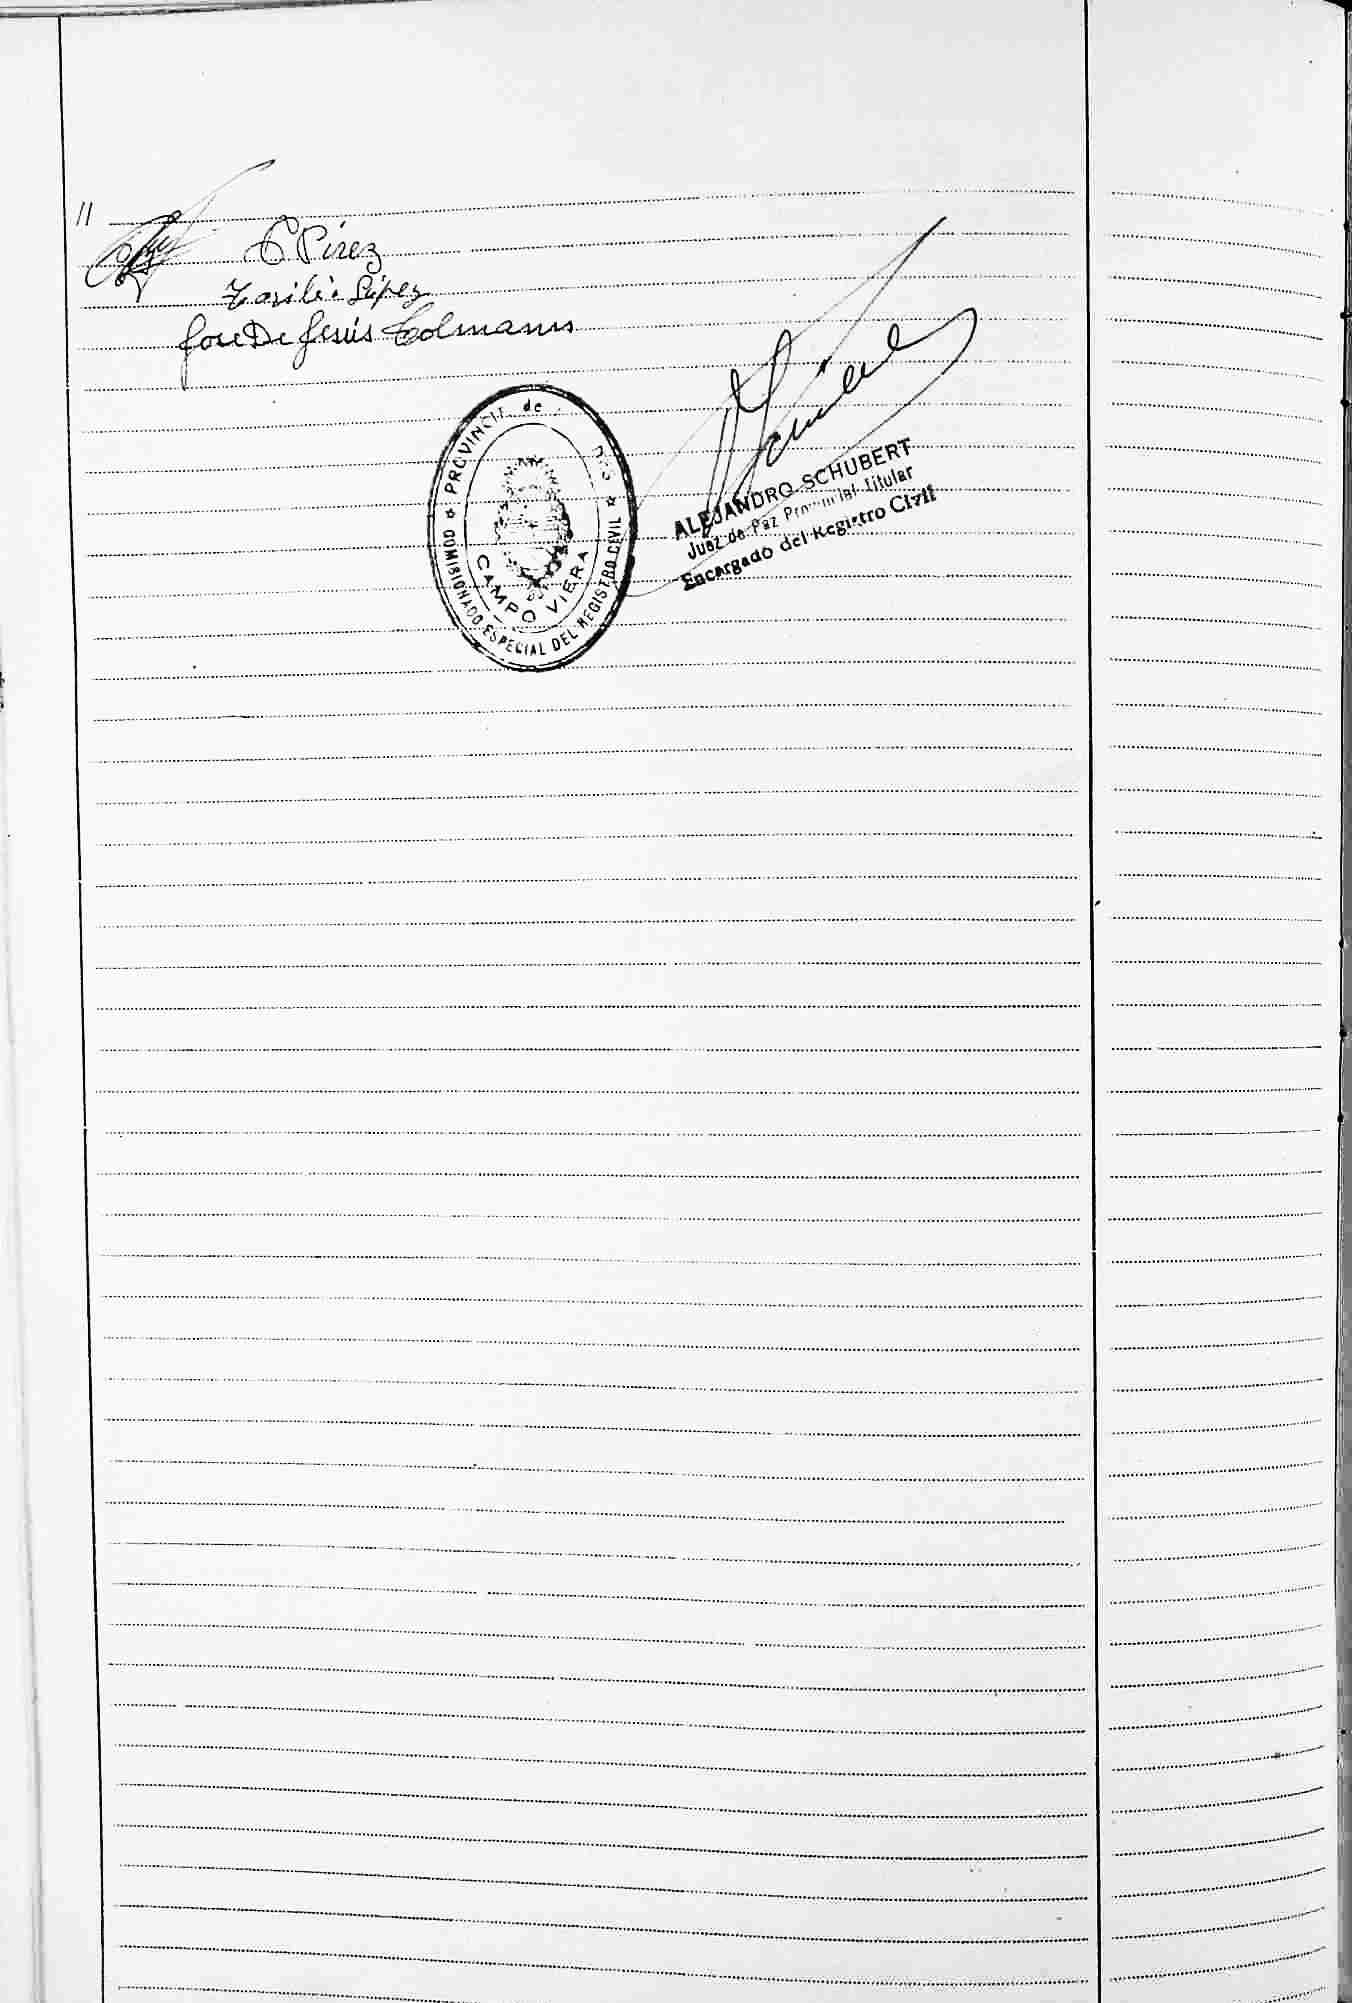 11
C Pírez
López
José De Jesús Colmann
PROVINCIA de
CAMPO VIERA
COMISIONADO ESPECIAL DEL REGISTRO CIVIL
ALEJANDRO SCHUBERT
Juez de Paz Provincial Titular
Encargado del Registro Civil